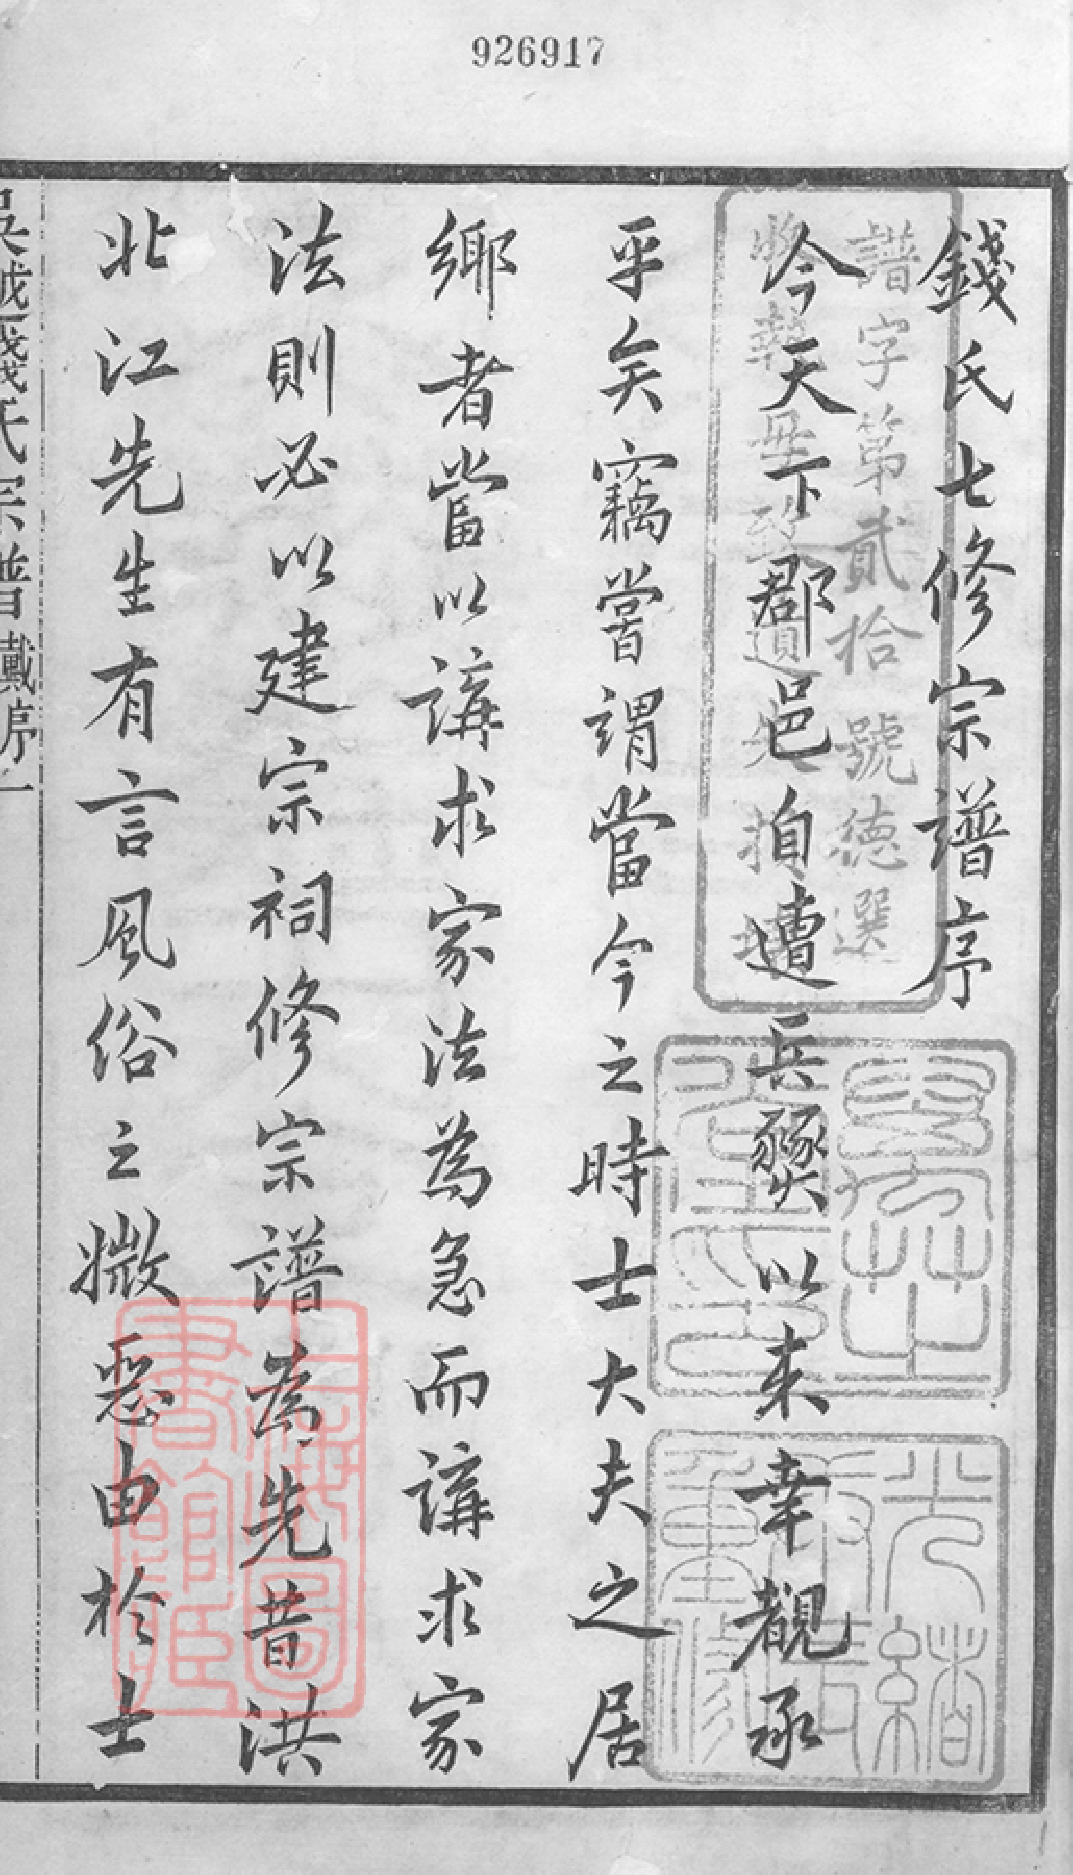 926917
錢氏七修宗譜序
今天下郡邑自遭兵燹以來幸覩承
平矣竊嘗謂當今之時士大夫之居
鄉者當以講求家法為急而講求家
法則必以建宗祠修宗譜為先昔洪
北江先生有言風俗之媺惡由於士
吳越錢氏宗譜 戴序 一
譜字第貳拾號德選
光緒
重修
上海圖書館藏